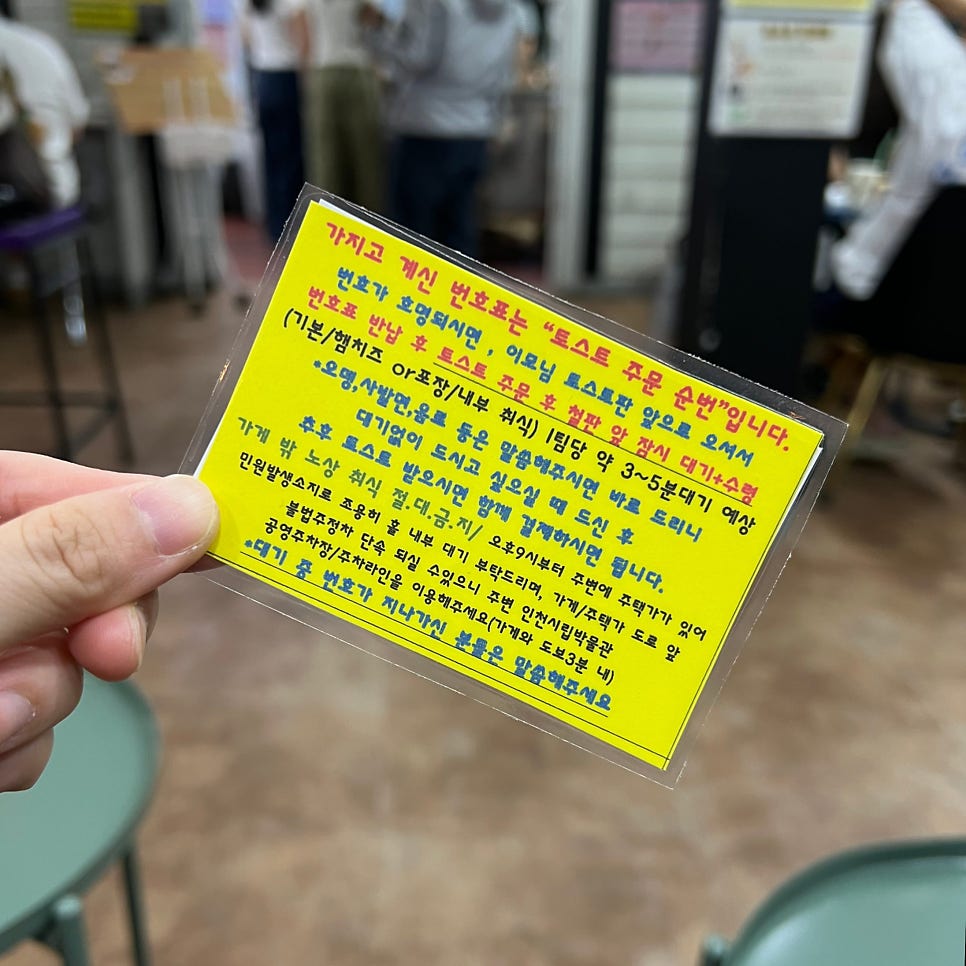 가지고 계신 번호표는 “토스트 주문 순번”입니다.
번호가 호명되시면, 이모님 토스트판 앞으로 오셔서
번호표 반납 후 토스트 주문 후 철판 앞 잠시 대기+수령
(기본/햄치즈 or포장/내부 취식) 1팀당 약 3~5분대기 예상
*오뎅,사발면,음료 등은 말씀해주시면 바로 드리니
대기없이 드시고 싶으실 때 드신 후
추후 토스트 받으시면 함께 결제하시면 됩니다.
가게 밖 노상 취식 절.대.금.지/ 오후9시부터 주변에 주택가가 있어
민원발생소지로 조용히 홀 내부 대기 부탁드리며, 가게/주택가 도로 앞
불법주정차 단속 되실 수있으니 주변 인천시립박물관
공영주차장/주차라인을 이용해주세요(가게와 도보3분 내)
*대기 중 번호가 지나가신 분들은 말씀해주세요